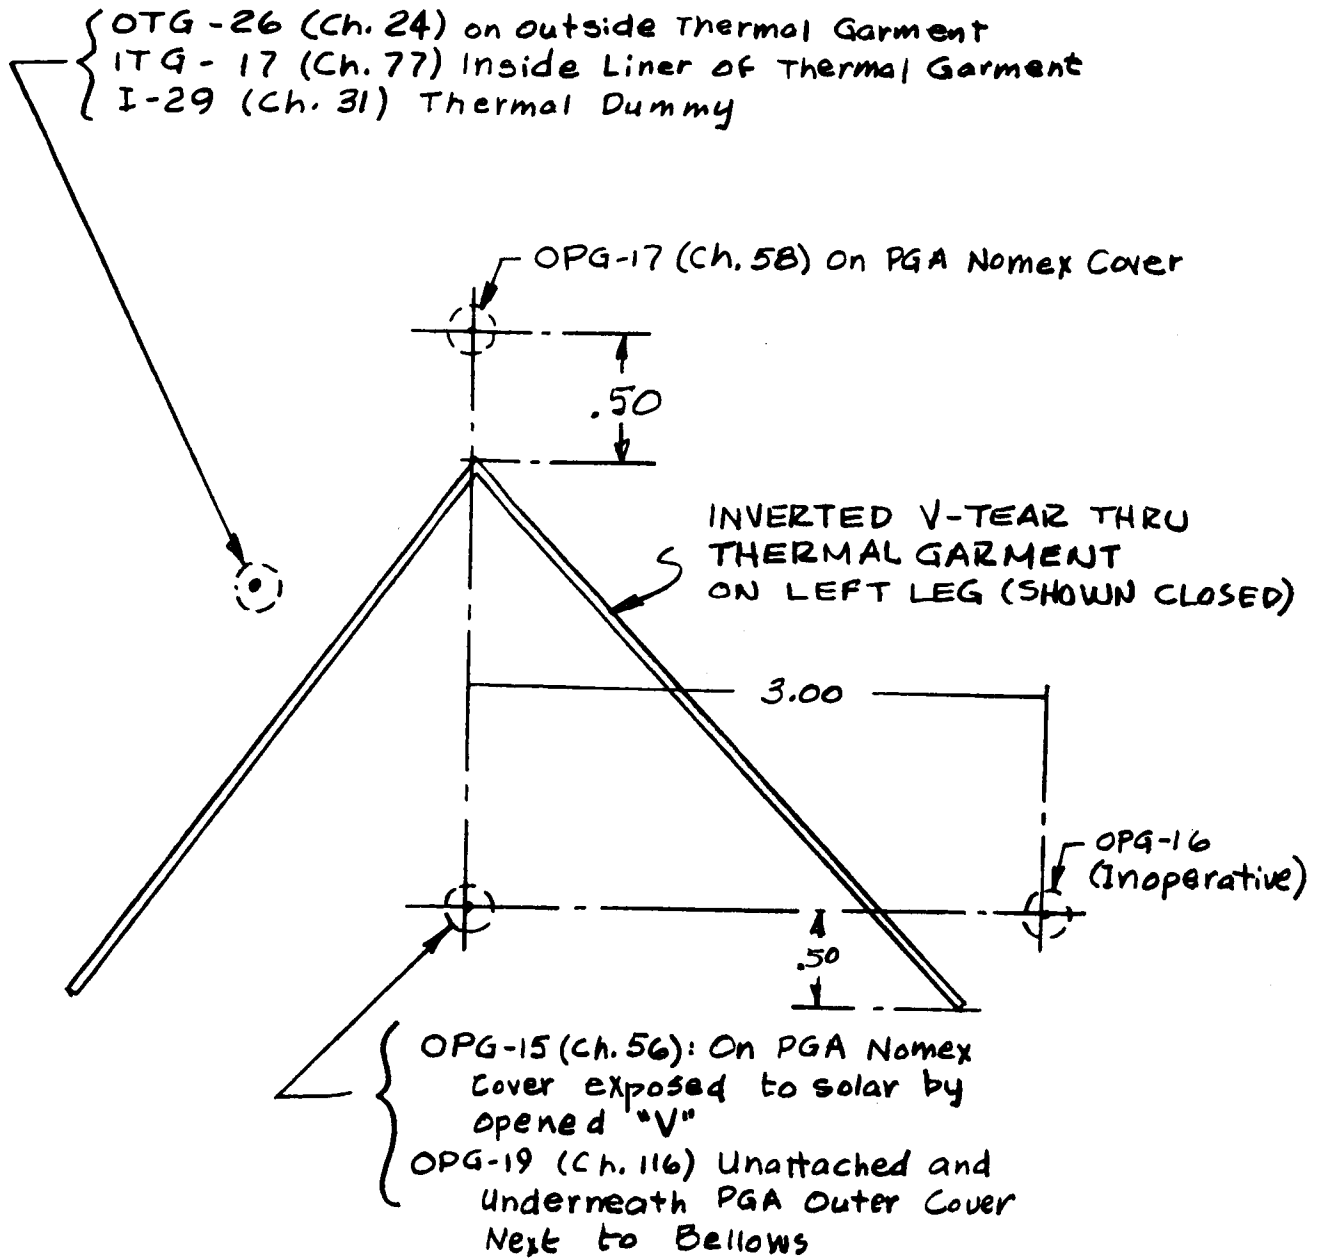 OTG-26 (Ch. 24) on Outside Thermal Garment
ITG-17 (Ch. 77) Inside Liner of Thermal Garment
I-29 (Ch. 31) Thermal Dummy
OPG-17 (Ch. 58) On PGA Nomex Cover
.50
INVERTED V-TEAR THRU
THERMAL GARMENT
ON LEFT LEG (SHOWN CLOSED)
3.00
OPG-16
(Inoperative)
.50
OPG-15 (Ch. 56): On PGA Nomex
Cover exposed to solar by
opened "V"
OPG-19 (Ch. 116) Unattached and
Underneath PGA Outer Cover
Next to Bellows